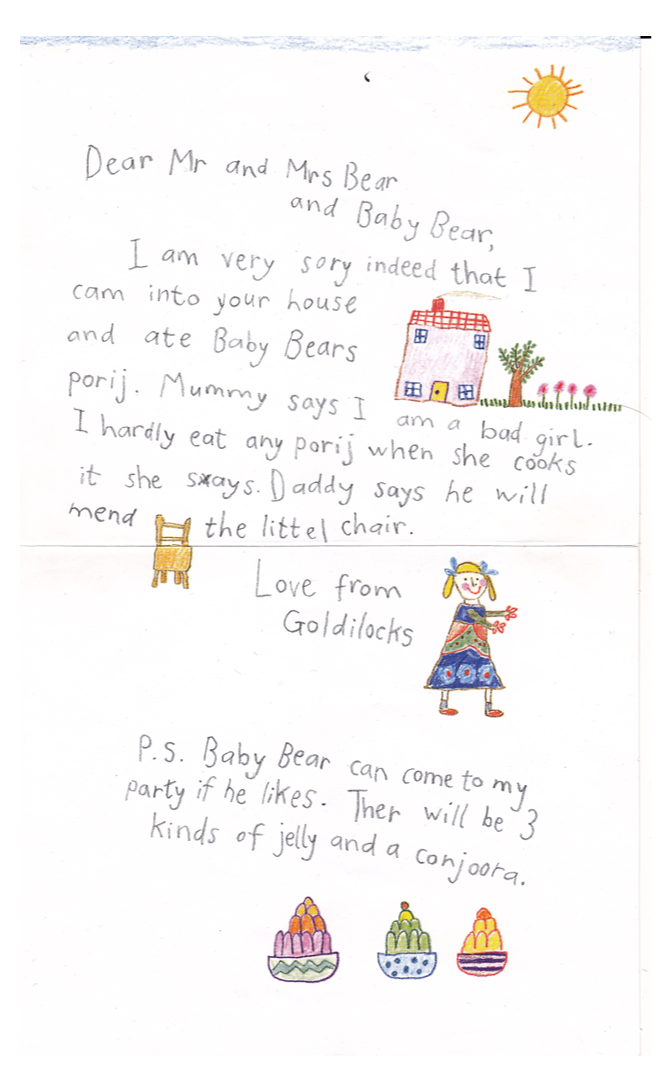 Dear Mr and Mrs Bear
and Baby Bear,
I am very sory indeed that I
cam into your house
and ate Baby Bears
porij. Mummy says I am a bad girl.
I hardly eat any porij when she cooks
it she sxays. Daddy says he will
mend the littel chair.
Love from
Goldilocks
P.S. Baby Bear can come to my
party if he likes. Ther will be 3
kinds of jelly and a conjoora.